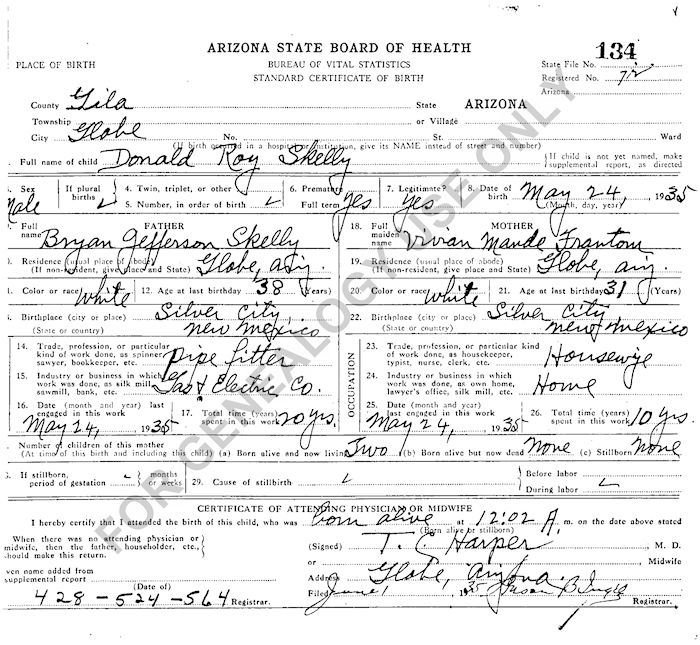 ARIZONA STATE BOARD OF HEALTH 134
PLACE OF BIRTH BUREAU OF VITAL STATISTICS State File No.
STANDARD CERTIFICATE OF BIRTH Registered No. 72
Arizona
County Gila State ARIZONA
Township or Village
City Globe No. St. Ward
(If birth occurred in a hospital or institution, give its NAME instead of street and number)
Full name of child Donald Roy Skelly { If child is not yet named, make supplemental report, as directed
Sex Male If plural births 4. Twin, triplet, or other 5. Number, in order of birth 6. Premature Full term Yes 7. Legitimate? Yes 8. Date of birth May 24, 1935 (Month, day, year)
FATHER MOTHER
Full name Bryan Jefferson Skelly 18. Full maiden name Vivian Maude Frantom
Residence (usual place of abode) (If non-resident, give place and State) Globe, Ariz. 19. Residence (usual place of abode) (If non-resident, give place and State) Globe, Ariz.
Color or race White 12. Age at last birthday 38 (Years) 20. Color or race White 21. Age at last birthday 31 (Years)
Birthplace (city or place) (State or country) Silver City, New Mexico 22. Birthplace (city or place) (State or country) Silver City, New Mexico
OCCUPATION
14. Trade, profession, or particular kind of work done, as spinner, sawyer, bookkeeper, etc. Pipe fitter 23. Trade, profession, or particular kind of work done, as housekeeper, typist, nurse, clerk, etc. Housewife
15. Industry or business in which work was done, as silk mill, sawmill, bank, etc. Gas & Electric Co. 24. Industry or business in which work was done, as own home, lawyer's office, silk mill, etc. Home
16. Date (month and year) last engaged in this work May 24, 1935 17. Total time (years) spent in this work 20 yrs. 25. Date (month and year) last engaged in this work May 24, 1935 26. Total time (years) spent in this work 10 yrs.
Number of children of this mother
(At time of this birth and including this child) (a) Born alive and now living Two (b) Born alive but now dead None (c) Stillborn None
If stillborn, period of gestation { months or weeks 29. Cause of stillbirth { Before labor During labor
CERTIFICATE OF ATTENDING PHYSICIAN OR MIDWIFE
I hereby certify that I attended the birth of this child, who was born alive at 12:02 A. m. on the date above stated
(Born alive or stillborn)
When there was no attending physician or midwife, then the father, householder, etc., should make this return. } (Signed) T. C. Harper M. D.
or Midwife
ven name added from supplemental report Address Globe, Arizona
(Date of)
428-524-564 Registrar. Filed June 1 1935 Susan B. Registrar.
FOR GENEALOGY USE ONLY